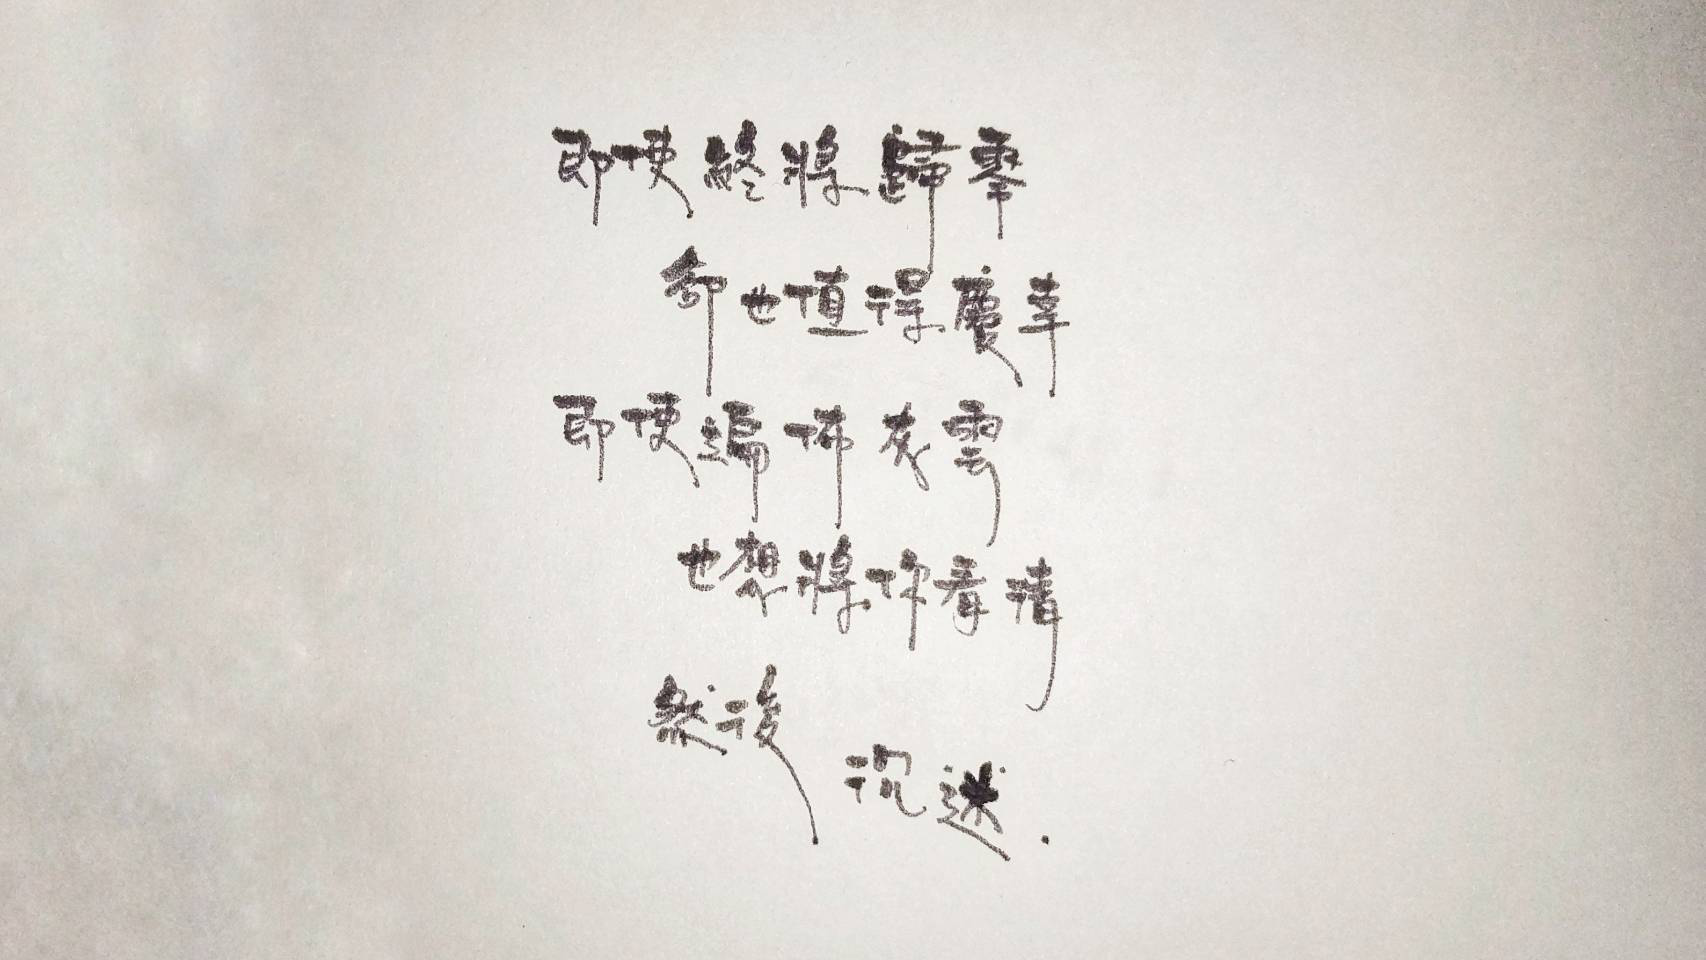 即便終將歸零
卻也值得慶幸
即便遍佈灰雲
也想將你看清
然後
沉迷.